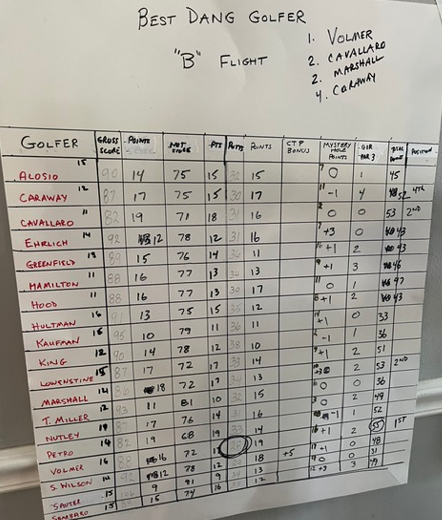 BEST DANG GOLFER
"B" FLIGHT
1. VOLMER
2. CAVALLARO
2. MARSHALL
4. CARAWAY
GOLFER GROSS SCORE POINTS NET SCORE PTS PUTTS POINTS CTP BONUS MYSTERY HOLE POINTS GIR PAR 3 TOTAL POSITION
ALOSIO 15 90 14 75 15 15 0 1 45
CARAWAY 12 87 17 75 15 30 17 -1 4 52 4TH
CAVALLARO 11 82 19 71 18 31 16 0 0 53 2ND
EHRLICH 14 92 12 78 12 31 16 +3 0 43
GREENFIELD 13 89 15 76 14 11 +1 2 43
HAMILTON 11 88 16 77 13 13 +1 3 46
HOOD 11 88 16 77 13 30 17 0 1 47
HULTMAN 16 91 13 75 15 12 +1 2 43
KAUFMAN 16 95 10 79 11 36 11 +1 0 33
KING 12 90 14 78 12 38 10 -1 1 36
LOWENSTINE 15 87 17 72 17 33 14 +1 2 51
MARSHALL 18 72 17 13 2 53 2ND
T. MILLER 12 93 11 81 10 32 15 0 0 36
NUTLEY 87 17 76 14 31 16 2 48
PETRO 14 82 19 68 19 -1 1 52
VOLMER 16 88 16 72 19 +1 2 55 1ST
S. WILSON 12 78 12 18 +5 0 48
SAUTER 9 91 9 13 0 31
15 74 16 12 +3 3